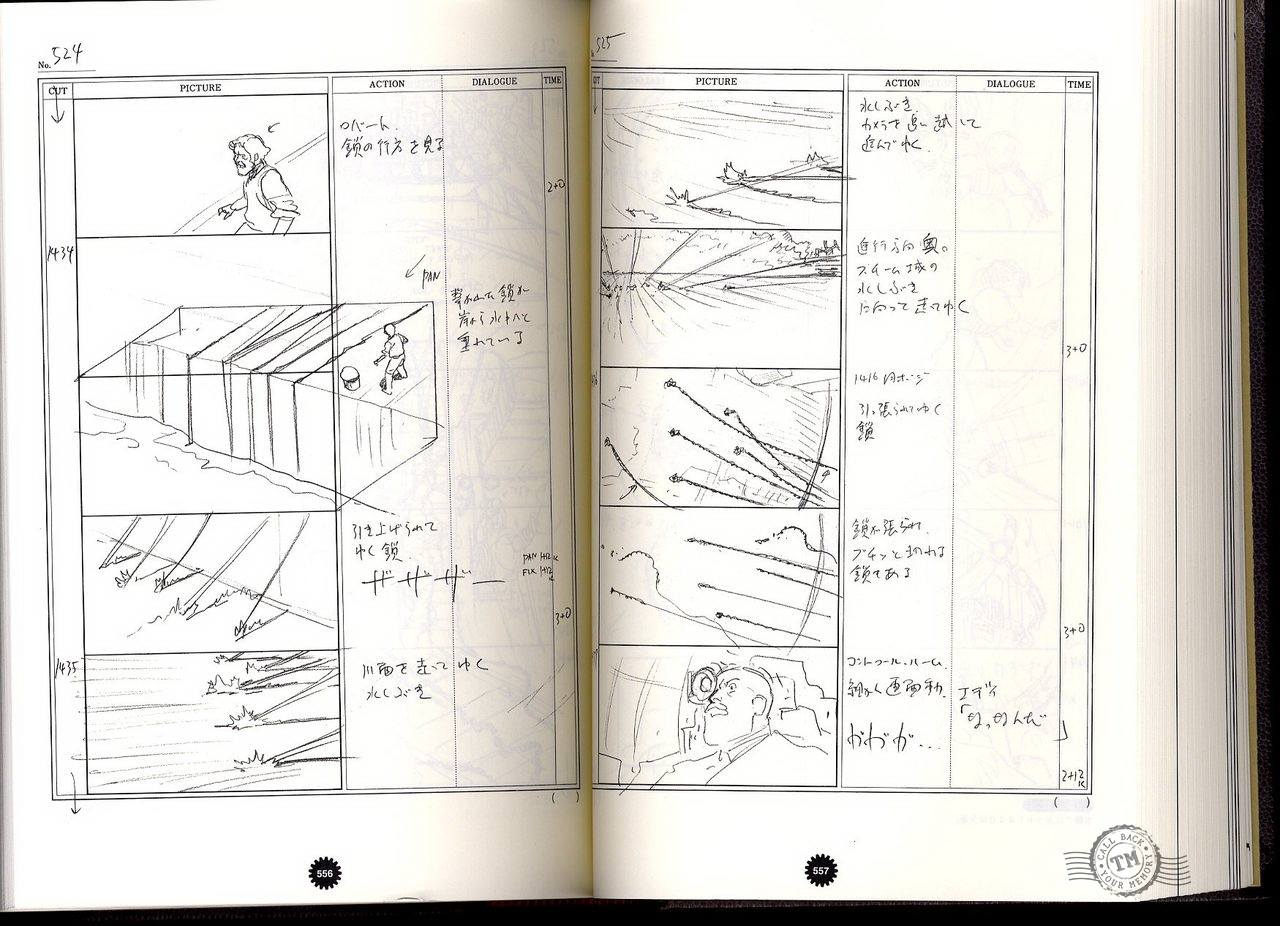 No. 524
CUT
PICTURE
ACTION
DIALOGUE
TIME
ロバート.
鎖の行方を見る
2+0
1434
PAN
岸から水中へと
垂れている
引き上げられて
ゆく鎖
ザザザー
PAN 1+12K
FIX 1+12K
3+0
1435
川面を走ってゆく
水しぶき
( )
556
525
CUT
PICTURE
ACTION
DIALOGUE
TIME
水しぶき.
カメラを追い越して
進んでゆく.
進行方向奥。
スチーム城の
水しぶき
に向って走ってゆく
3+0
1416
引っ張られてゆく
鎖
鎖が張られ.
ブチッと切れる
鎖もある
3+0
コントロール・ルーム.
細かく画面動.
ガガガ...
エディ
「なっなんだ」
2+12K
( )
557
CALL BACK
TM
YOUR MEMORY